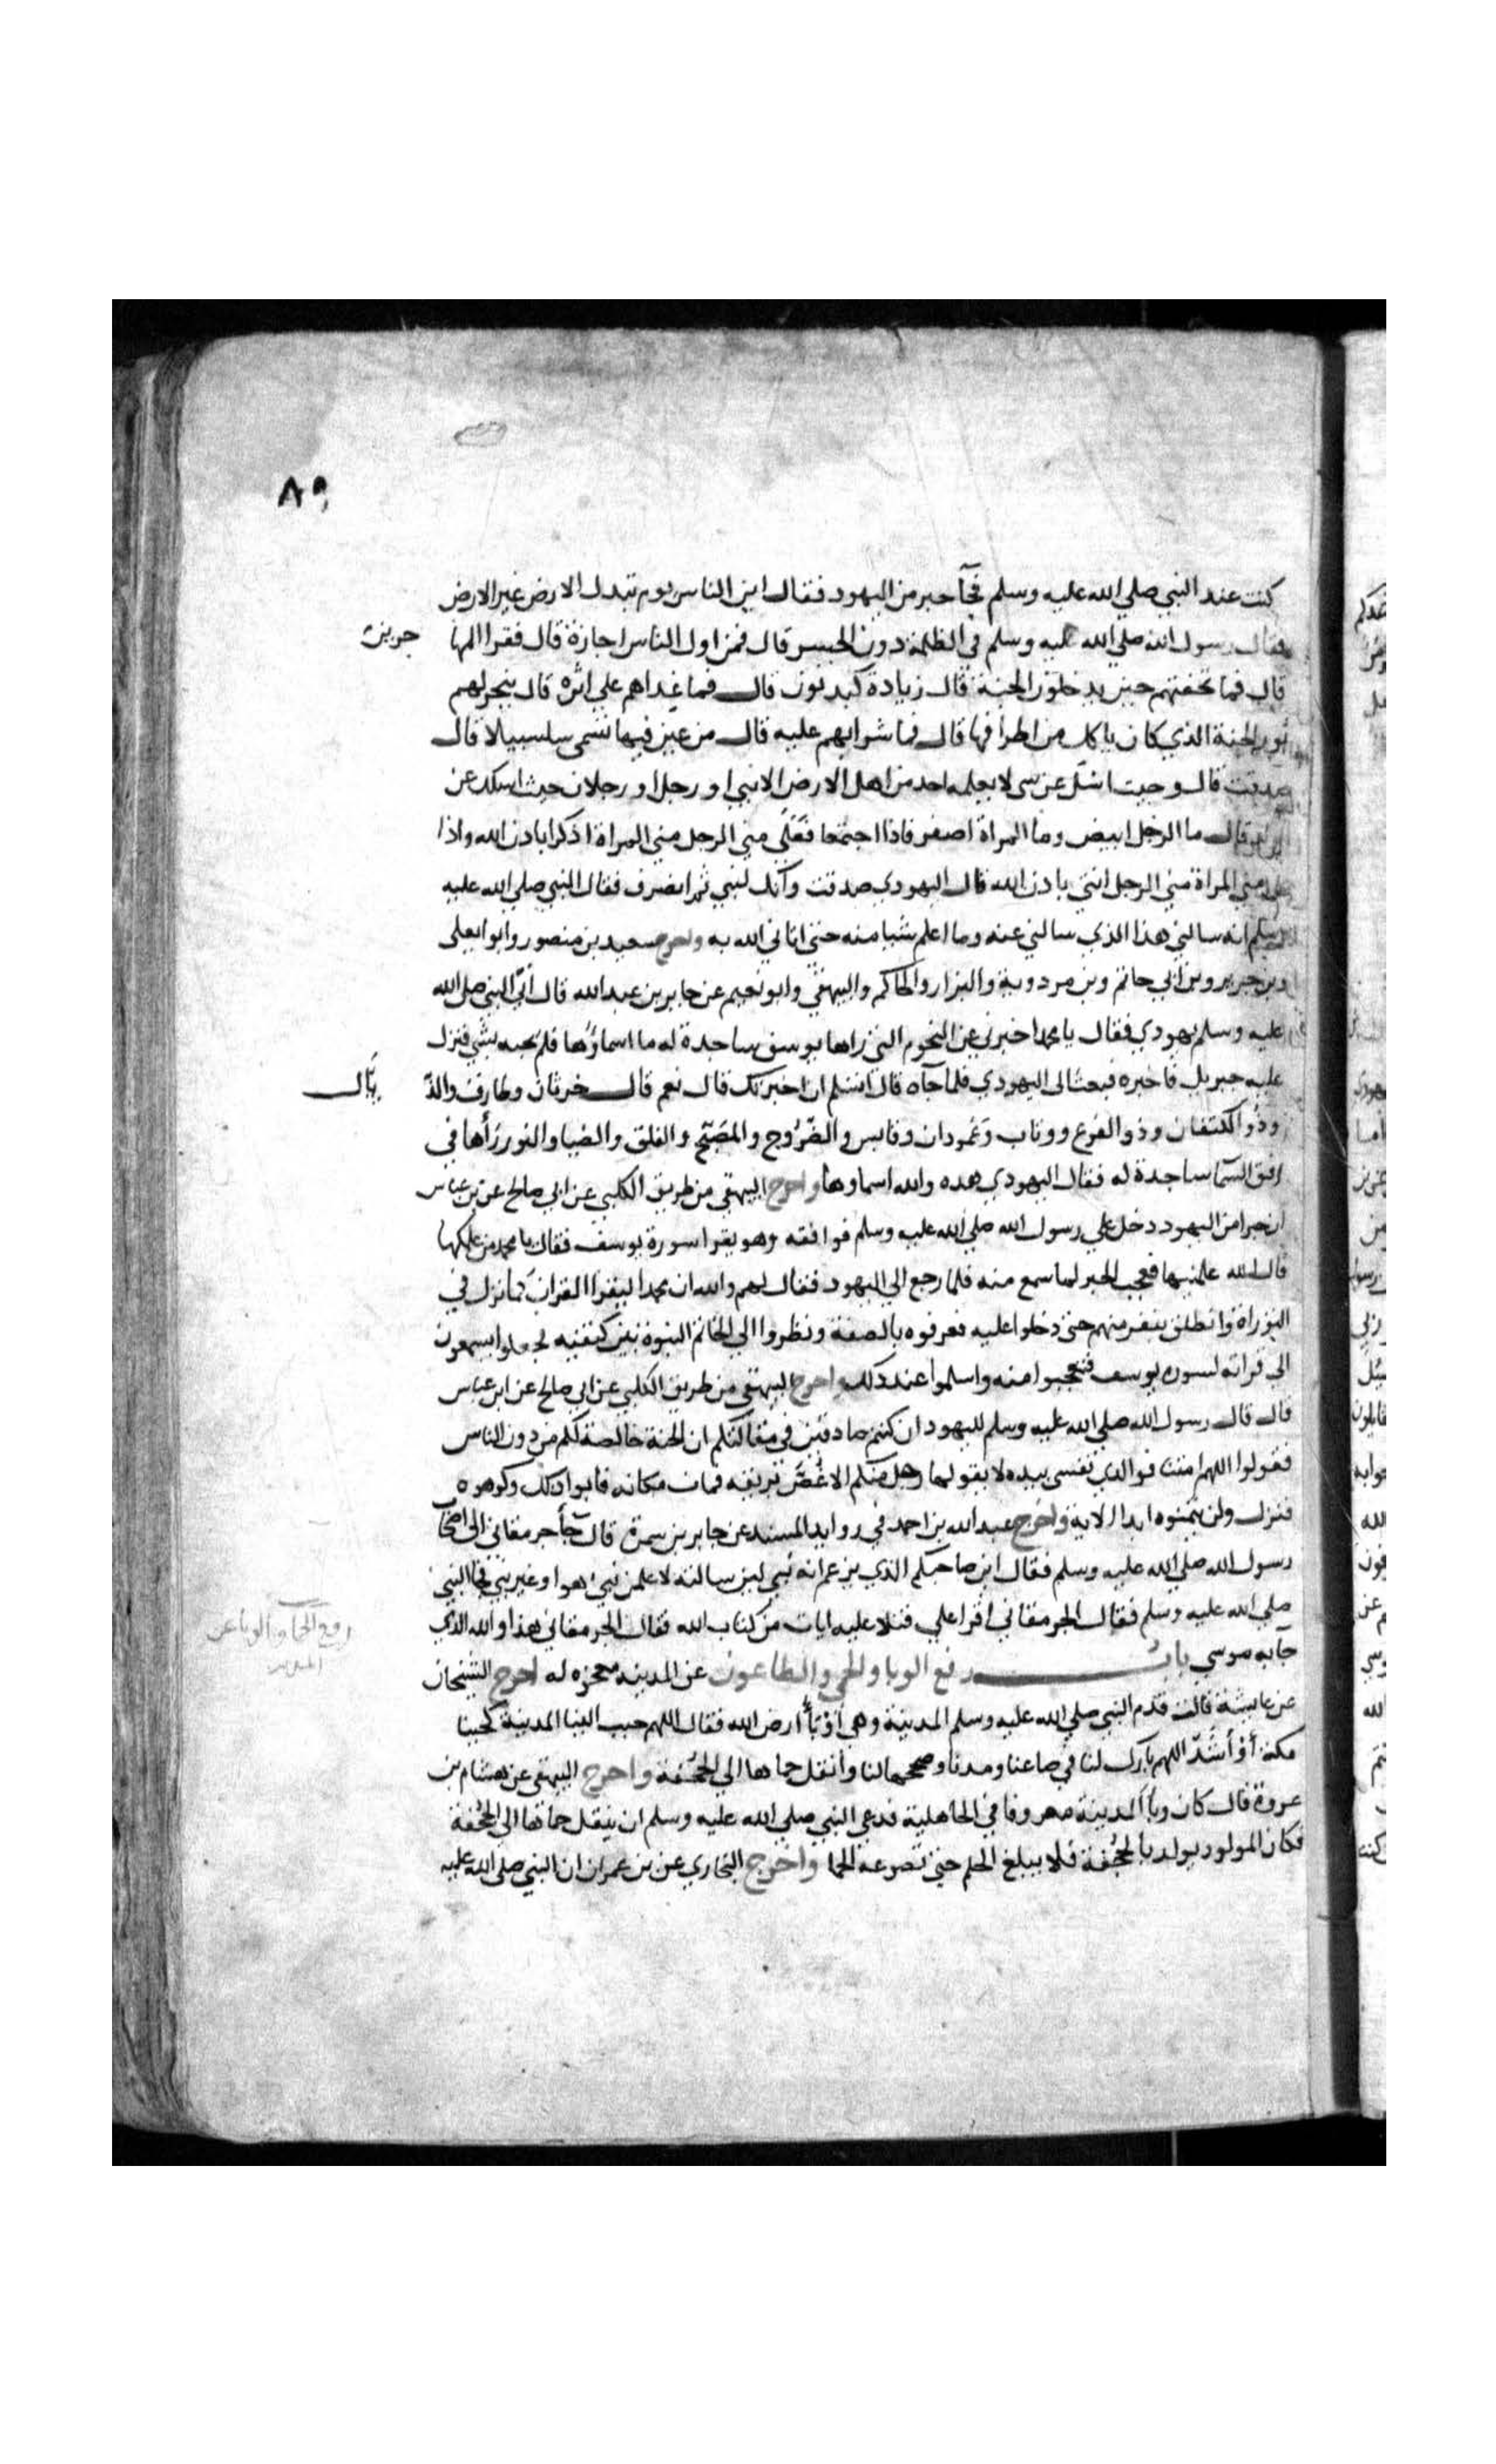 ٨٩
كنت عند النبي صلي الله عليه وسلم فجآ حبر من اليهود فقال اين الناس يوم تبدل الارض غير الارض
فقال رسول الله صلي الله عليه وسلم في الظلمة دون الجسر قال فمن اول الناس اجازة قال فقرا المها جرين
قال فما تحفتهم حين يدخلون الجنة قال زيادة كبد نون قال فما غداهم علي اثره قال ينحر لهم
ثور الجنة الذي كان ياكل من اطرافها قال فما شرابهم عليه قال من عين فيها تسمى سلسبيلا قال
صدقت قال وجيت اسئل عن شي لا يعلمه احد من اهل الارض الا نبي او رجل او رجلان جيت اسلك عن
الولد قال ما الرجل ابيض وما المراة اصفر فاذا اجتمعا فعلى مني الرجل مني المراة اذكرا باذن الله واذا
على مني المراة مني الرجل انثي باذن الله قال اليهودي صدقت وانك لنبي ثم انصرف فقال النبي صلي الله عليه
وسلم انه سالني هذا الذي سالني عنه وما اعلم شيا منه حتي اتاني الله به واخرج سعيد بن منصور وابو ايعلى
وبن جرير وبن ابي حاتم وبن مردوية والبزار والحاكم والبيهقي وابو نعيم عن جابر بن عبد الله قال اتي النبي صلى الله
عليه وسلم يهودي فقال يا محمد اخبرني عن النجوم التي راها يوسف ساجدة له ما اسماؤها فلم يجبه بشي فنزل
عليه جبريل فاخبره فبعث الى اليهودي فلما جآه قال اتسلم ان اخبرتك قال نعم قال خرثان وطارق والذ يال
وذو الكتفان وذو الفرع ووثاب وعمودان وقابس والضروج والمصبح والفلق والضيا والنور رأها في
افق السمآ ساجدة له فقال اليهودي هده والله اسماوها واخرج البيهقي من طريق الكلبي عن ابي صالح عن بن عباس
ان حبرا من اليهود دخل علي رسول الله صلي الله عليه وسلم فوافقه وهو يقرا سورة يوسف فقال يا محمد من علمكها
قال الله علمنيها فعجب الحبر لما سمع منه فلما رجع الي اليهود فقال لهم والله ان محمدا ليقرا القران كما نزل في
التوراة وانطلق بنفر منهم حتى دخلوا عليه فعرفوه بالصفة ونظروا الي الخاتم النبوة بين كتفيه فجعلوا يسمعون
الي قراته لسوره يوسف فتعجبوا منه واسلموا عند دلك واخرج البيهقي من طريق الكلبي عن ابي صالح عن ابن عباس
قال قال رسول الله صلي الله عليه وسلم لليهود ان كنتم صادقين في مقالتكم ان الجنة خالصة لكم من دون الناس
فقولوا اللهم امتنا فوالدي نفسي بيده لا يقولها رجل منكم الا غص بريقه فمات مكانه فابوا دلك وكرهوه
فنزل ولن يتمنوه ابدا الاية واخرج عبد الله بن احمد في روايد المسند عن جابر بن سمرة قال جآ جرمقاني الى اصحاب
رسول الله صلي الله عليه وسلم فقال اين صاحبكم الذي يزعم انه نبي لين سالته لاعلمن نبي هوا وغير نبي فجا النبي
صلي الله عليه وسلم فقال الجرمقاني اقرا علي فتلا عليه ايات من كتاب الله فقال الجرمقاني هذا والله الدي
جآ به موسي باب رفع الوبا والحمي والطاعون عن المدينه معجزه له اخرج الشيخان
رفع الحما والوبا عن
عن عايشة قالت قدم النبي صلي الله عليه وسلم المدينة وهي اوبأ ارض الله فقال اللهم حبب الينا المدينة كحبنا
مكة أو أشد اللهم بارك لنا في صاعنا ومدنا وصححها لنا وانقل حماها الي الجحفة واخرج البيهقي عن هشام بن
عروة قال كان وبأ المدينة معروفا في الجاهلية فدعي النبي صلي الله عليه وسلم ان ينقل حماها الي الجحفة
فكان المولود يولد بالجحفة فلا يبلغ الحلم حتي تصرعه الحما واخرج البخاري عن بن عمر ان ان النبي صلى الله عليه